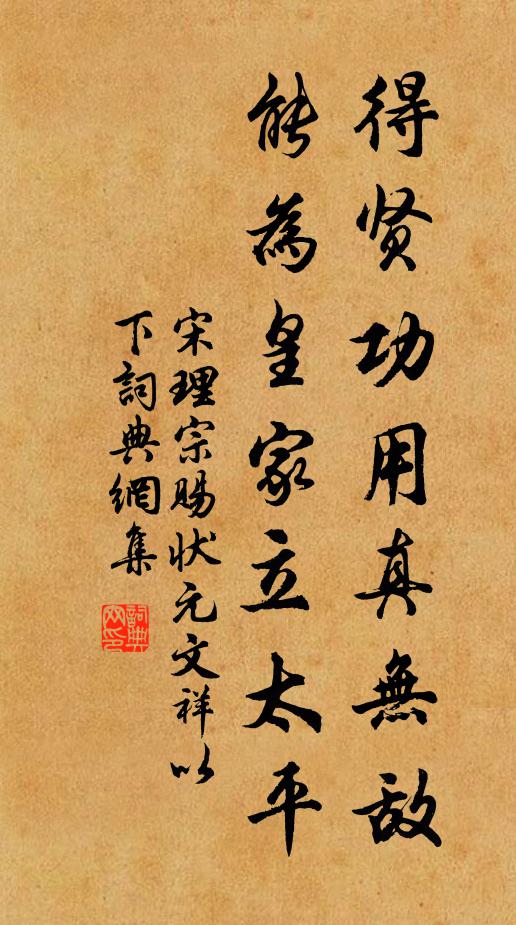 得贤功用真無敌
能為皇家立太平
宋理宗賜状元文祥以
下詞典網集
詞典
网印